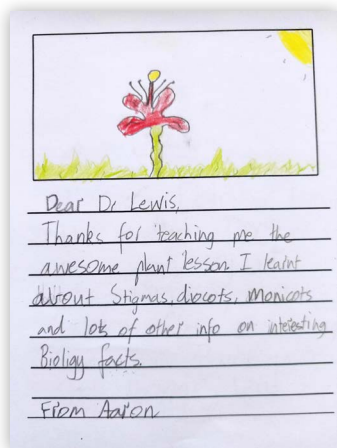 Dear Dr Lewis,
Thanks for teaching me the
awesome plant lesson. I learnt
about Stigmas, diocots, monicots
and lots of other info on interesting
Bioligy facts.
From Aaron